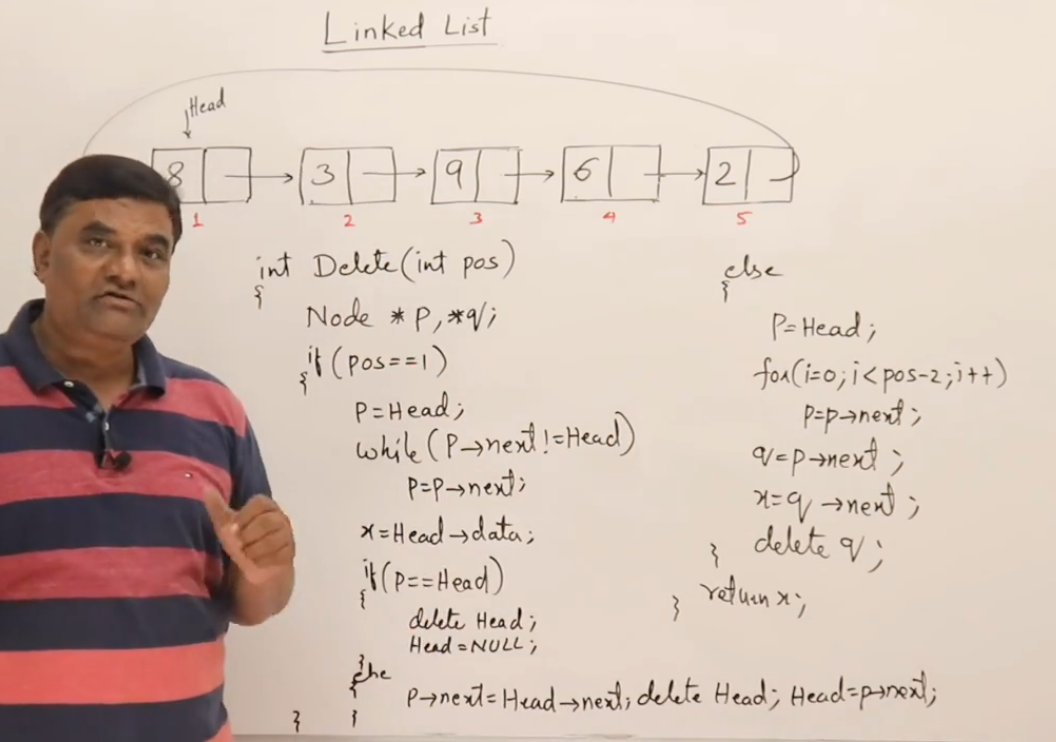 Linked List
Head
8 3 9 6 2
1 2 3 4 5
int Delete(int pos)
{
Node *p,*q;
if(pos==1)
{
P=Head;
while(P→next!=Head)
P=P→next;
x=Head→data;
if(P==Head)
{
delete Head;
Head=NULL;
}
else
{
P→next=Head→next; delete Head; Head=p→next;
}
}
else
{
P=Head;
for(i=0;i<pos-2;i++)
p=p→next;
q=p→next;
x=q→next;
delete q;
}
return x;
}